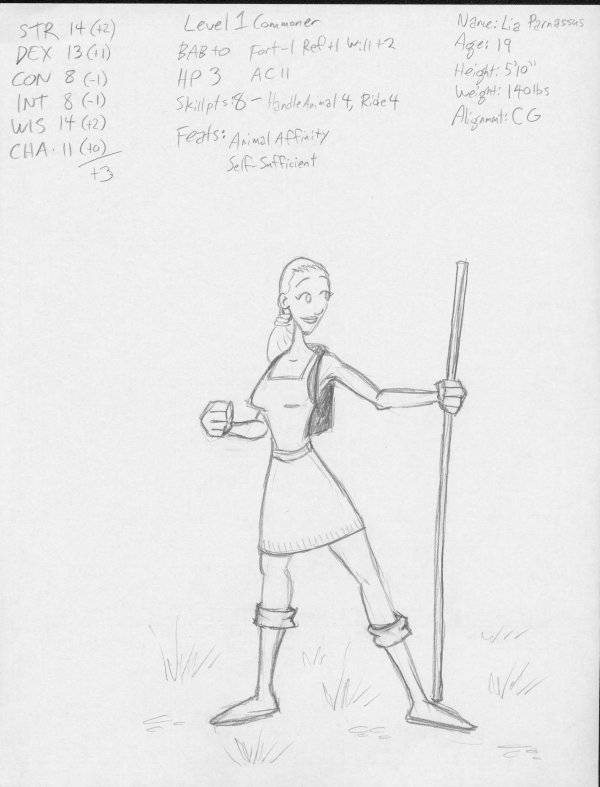 STR 14 (+2)
DEX 13 (+1)
CON 8 (-1)
INT 8 (-1)
WIS 14 (+2)
CHA. 11 (+0)
+3
Level 1 Commoner
BAB +0 Fort-1 Ref+1 Will+2
HP 3 AC 11
Skillpts: 8 - Handle Animal 4, Ride 4
Feats: Animal Affinity
Self-Sufficient
Name: Lia Parnassus
Age: 19
Height: 5'10"
Weight: 140lbs
Alignment: CG